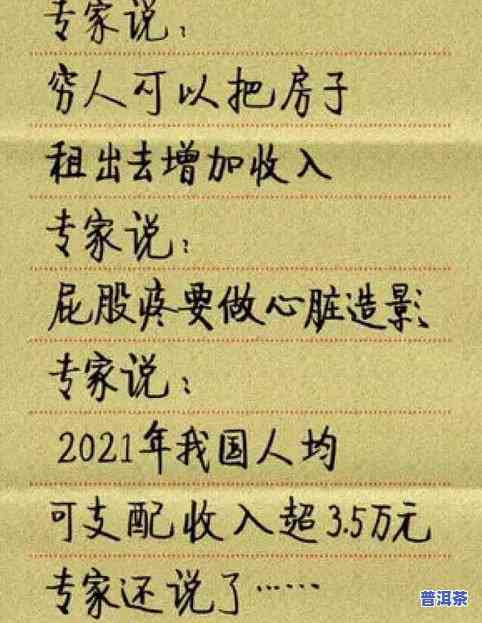 专家说:
穷人可以把房子
租出去增加收入
专家说:
屁股疼要做心脏造影
专家说:
2021年我国人均
可支配收入超3.5万元
专家还说了……
普洱茶